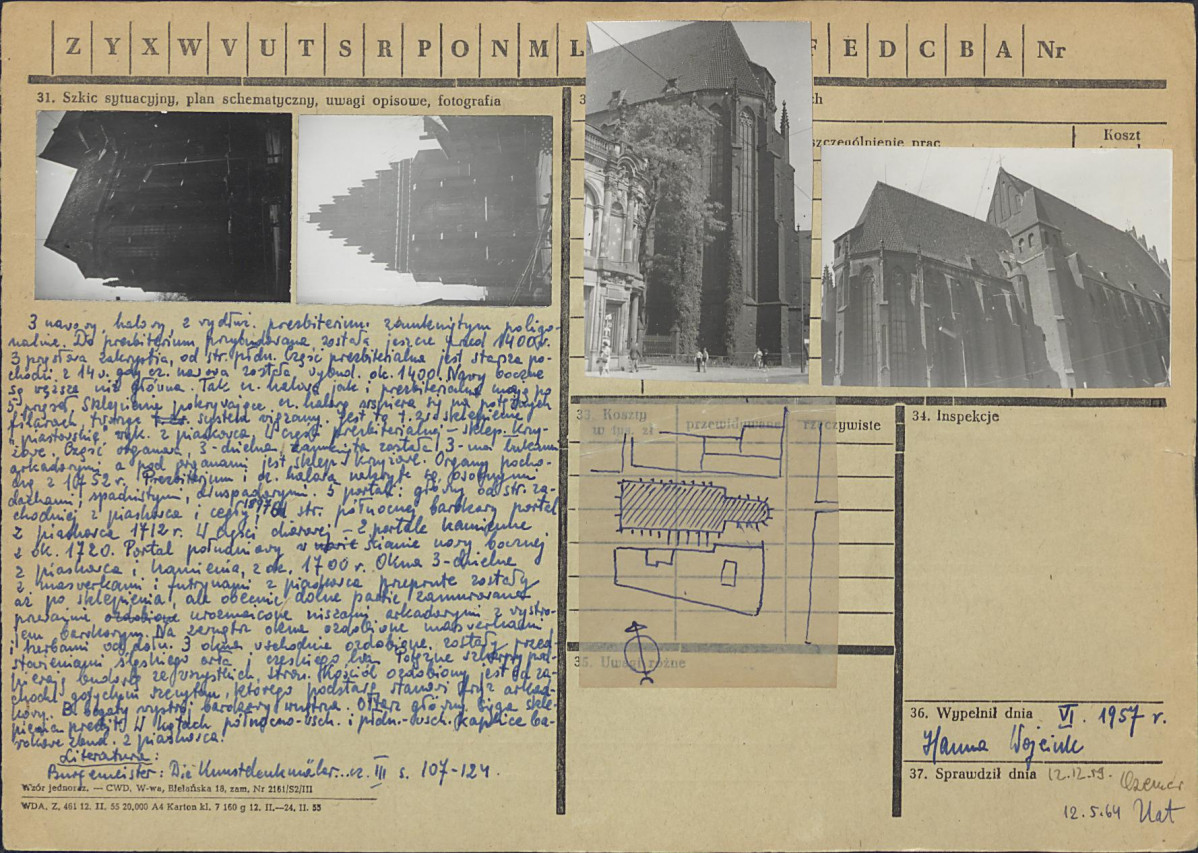 Z Y X W V U T S R P O N M L F E D C B A Nr
31. Szkic sytuacyjny, plan schematyczny, uwagi opisowe, fotografia
3
ch
szczególnienie prac
Koszt
3 nawowy, halowy, z wydłuż. prezbiterium zamkniętym poligo-
nalnie. Do prezbiterium przybudowana została jeszcze przed 1400 r.
3 przęsłowa zakrystia, od str. płdn. Część prezbiterialna jest starsza po-
chodzi z 14 w. gdy cz. nawowa została wybud. ok. 1400. Nawy boczne
są węższe niż główna. Tak cz. halowa jak i prezbiterialna mają po
5 przęseł. Sklepienie pokrywające cz. halową wspiera się na potężnych
filarach, tworząc system wiązany. Jest to t. zw. sklepienie
piastowskie wyk. z piaskowca. W części prezbiterialnej – sklep. krzy-
żowe. Część organowa, 3-dzielna, zamknięta została 3-ma łukami
arkadowymi a pod organami jest sklep. krzyżowe. Organy pocho-
dzą z 1752 r. Prezbiterium i cz. halowa nakryte są osobnymi
dachami, spadzistymi, dwuspadowymi. 5 portali: główny od str. za-
chodniej z piaskowca i cegły, od str. północnej barokowy portal
z piaskowca 1712 r. W części chórowej – 2 portale kamienne
z ok. 1720. Portal południowy w ścianie nawy bocznej
z piaskowca i kamienia, z ok. 1700 r. Okna 3-dzielne
z maswerkami i futrynami z piaskowca przeprute zostały
aż po sklepienia, ale obecnie dolne partie zamurowane
przeważnie urozmaicone niszami arkadowymi z wystro-
jem barokowym. Na zewnątrz okna ozdobione maswerkami
i herbami od dołu. 3 okna wschodnie ozdobione zostały przed-
stawieniami śląskiego orła i czeskiego lwa. Potężne szkarpy pod-
pierają budowlę ze wszystkich stron. Kościół ozdobiony jest od za-
chodu gotyckim szczytem, którego podstawę stanowi fryz arkad-
kowy. B. bogaty wystrój barokowy wnętrza. Ołtarz główny sięga skle-
pienia prezbit. W kątach północno-wsch. i płdn.-wsch. kaplice ba-
rokowe zbud. z piaskowca.
Literatura:
Burgemeister: Die Kunstdenkmäler... cz. III s. 107-124.
Wzór jednoraz. — CWD, W-wa, Bielańska 18, zam, Nr 2161/S2/III
WDA. Z. 461 12. II. 55 20,000 A4 Karton kl. 7 160 g 12. II.—24. II. 55
33. Koszty
w tys. zł
przewidywane
rzeczywiste
34. Inspekcje
35. Uwagi różne
36. Wypełnił dnia VI. 1957 r.
Hanna Wojcik
37. Sprawdził dnia 12.12.59.
12.5.64